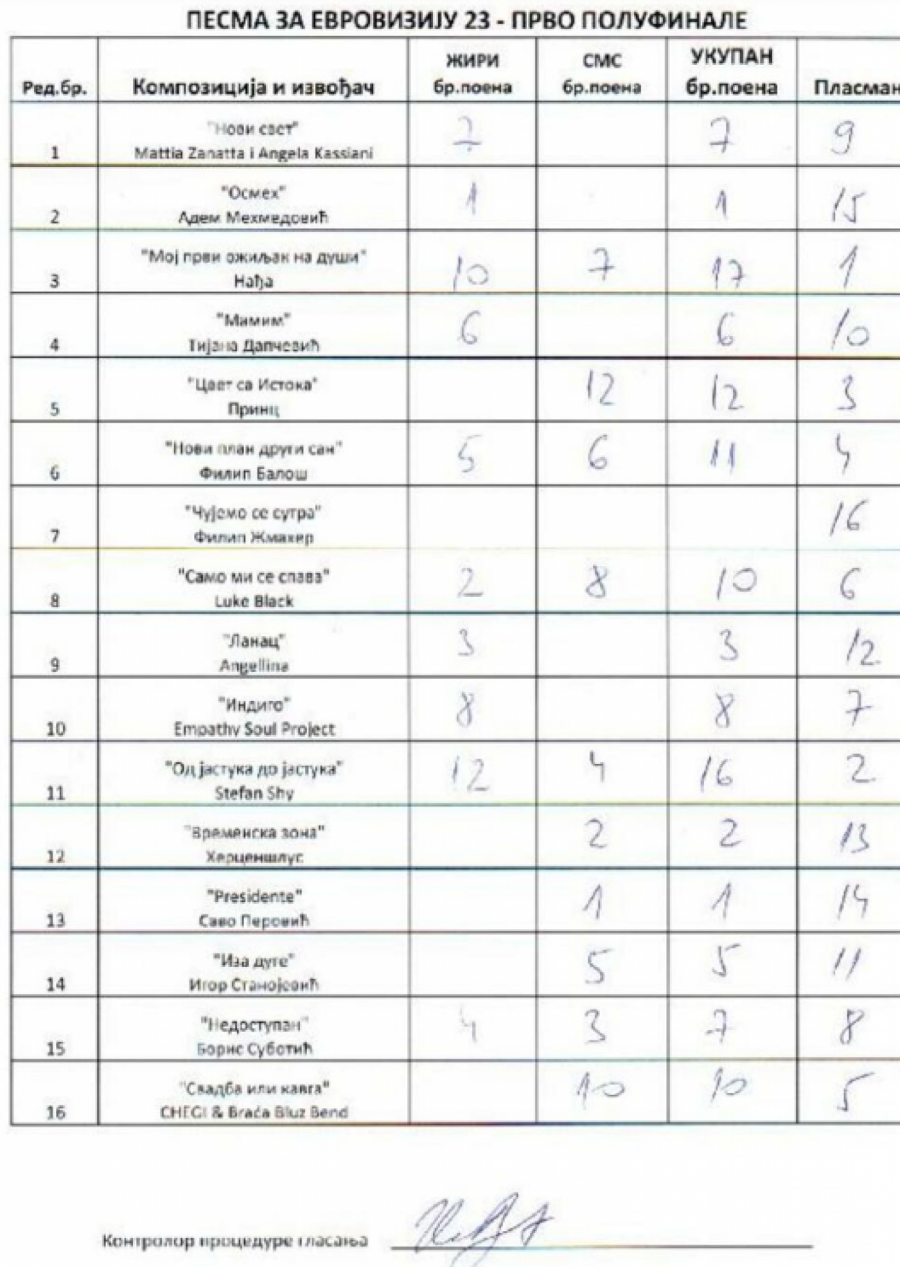 ПЕСМА ЗА ЕВРОВИЗИЈУ 23 - ПРВО ПОЛУФИНАЛЕ
Ред.бр. Композиција и извођач ЖИРИ бр.поена СМС бр.поена УКУПАН бр.поена Пласман
1 "Нови свет" 7 7 9
Mattia Zanatta i Angela Kassiani
2 "Осмех" 1 1 15
Адем Мехмедовић
3 "Мој први ожиљак на души" 10 7 17 1
Нађа
4 "Мамим" 6 6 10
Тијана Дапчевић
5 "Цвет са Истока" 12 12 3
Принц
6 "Нови план други сан" 5 6 11 4
Филип Балош
7 "Чујемо се сутра" 16
Филип Жмахер
8 "Само ми се спава" 2 8 10 6
Luke Black
9 "Ланац" 3 3 12
Angellina
10 "Индиго" 8 8 7
Empathy Soul Project
11 "Од јастука до јастука" 12 4 16 2
Stefan Shy
12 "Временска зона" 2 2 13
Херценшлус
13 "Presidente" 1 1 14
Саво Перовић
14 "Иза дуге" 5 5 11
Игор Станојевић
15 "Недоступан" 4 3 7 8
Борис Суботић
16 "Свадба или кавга" 10 10 5
CHEGI & Braća Bluz Bend
Контролор процедуре гласања